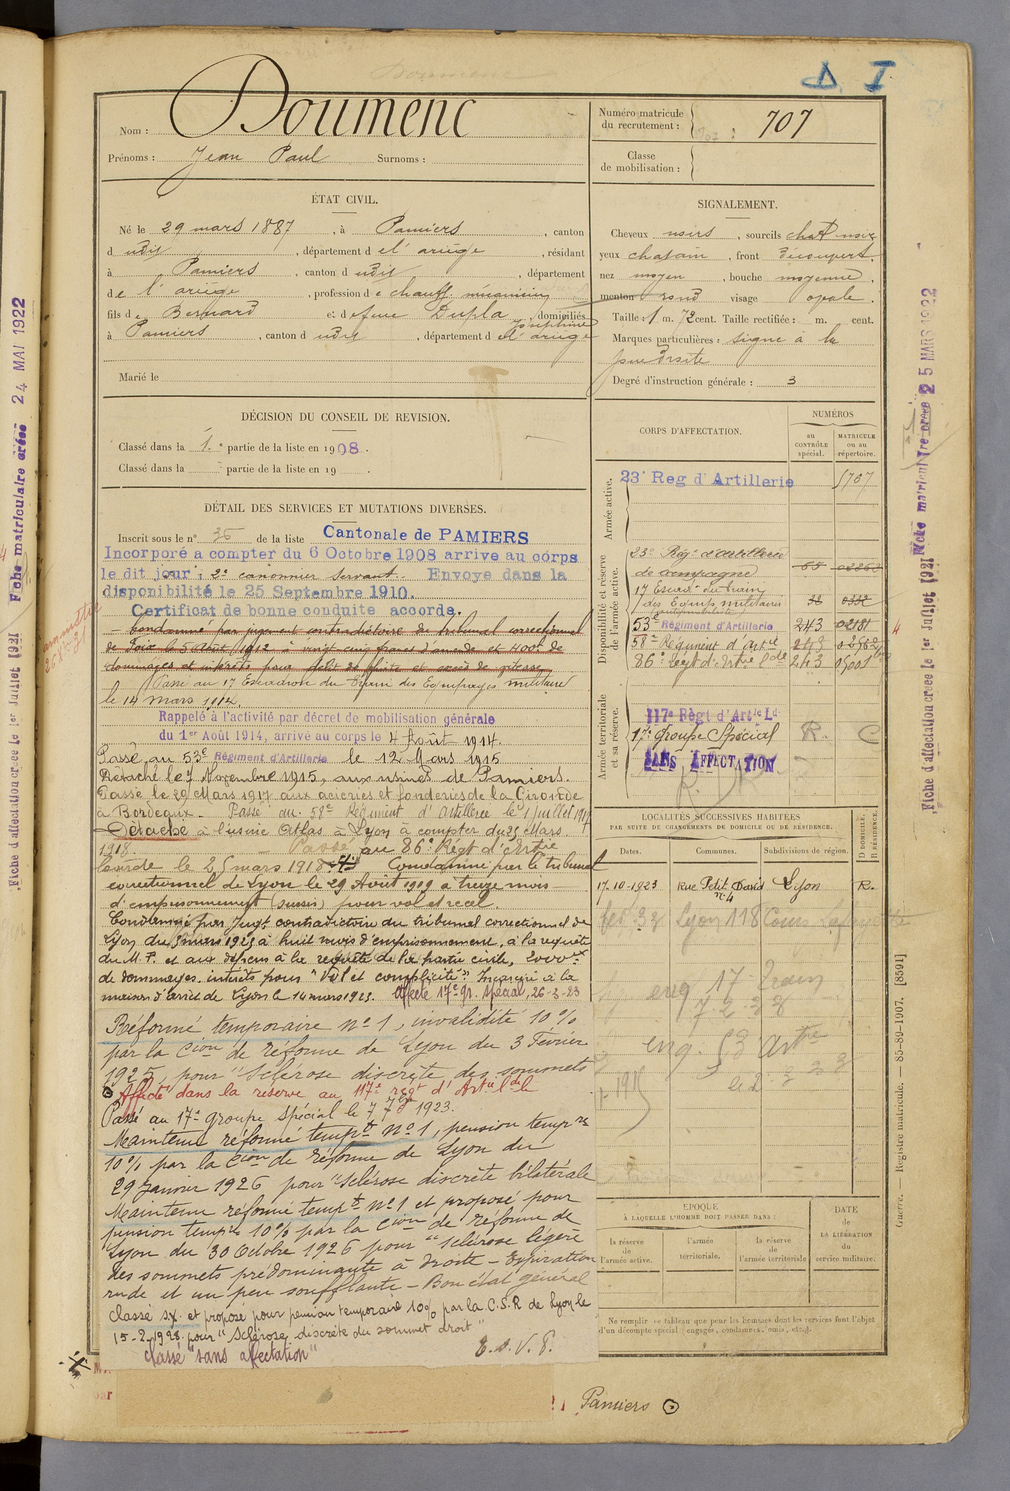 D. I
Nom : Doumenc
Prénoms : Jean Paul Surnoms :
Numéro matricule
du recrutement : 707
Classe
de mobilisation :
ÉTAT CIVIL.
Né le 29 mars 1887, à Pamiers, canton
d udit, département d e l'ariège, résidant
à Pamiers, canton d udit, département
de l'ariège, profession de chauff. mécanicien
fils de Bernard et d e feue Dupla Joséphine, domiciliés
à Pamiers, canton d udit, département d e l'ariège
Marié le
SIGNALEMENT.
Cheveux noirs, sourcils chat noir
yeux chatain, front découvert,
nez moyen, bouche moyenne,
menton rond visage ovale.
Taille : 1 m. 72 cent. Taille rectifiée : m. cent.
Marques particulières : signe à la
joue droite
Degré d'instruction générale : 3
DÉCISION DU CONSEIL DE REVISION.
Classé dans la 1e partie de la liste en 1908.
Classé dans la partie de la liste en 19 .
DÉTAIL DES SERVICES ET MUTATIONS DIVERSES.
Inscrit sous le n° 36 de la liste Cantonale de PAMIERS
Incorporé a compter du 6 Octobre 1908 arrive au corps
le dit jour ; 2e canonnier servant. Envoye dans la
disponibilité le 25 Septembre 1910.
Certificat de bonne conduite accorde.
Condamné par jugement contradictoire du tribunal correctionnel
de Foix le 5 Août 1912 à vingt cinq francs d'amende et 400f de
dommages et intérêts pour délit de fuite et excès de vitesse
Passé au 17 Escadron du Train des Equipages militaires
le 14 mars 1914.
Rappelé à l'activité par décret de mobilisation générale
du 1er Août 1914, arrivé au corps le 4 Août 1914.
Passé au 53e Régiment d'Artillerie le 12 Mars 1915
Détaché le 7 Novembre 1915, aux usines de Pamiers.
Passé le 29 Mars 1917 aux acieries et fonderies de la Gironde
à Bordeaux. Passé au 58e Régiment d'Artillerie le 1 juillet 1917
Détaché à l'usine Atlas à Lyon à compter du 25 Mars
1918. Passé au 86e Régt d'Artrie
lourde le 25 mars 1918. Condamné par le tribunal
correctionnel de Lyon le 29 Août 1919 à treize mois
d'emprisonnement (sursis) pour vol et recel.
Condamné par Jugt contradictoire du tribunal correctionnel de
Lyon du 3 mars 1923 à huit mois d'emprisonnement, à la requête
du M. P. et aux dépens à la requête de la partie civile, 2000 fr
de dommages-intérêts pour "Vol et complicité". Incarcéré à la
maison d'arrêt de Lyon le 14 mars 1923. Affecté 17e gr. spécial, 26-3-23
Réformé temporaire n° 1, invalidité 10 %
par la Cion de réforme de Lyon du 3 Février
1925, pour "Sclérose discrète des sommets"
Affecté dans la reserve au 117e regt d'Artie lde le
Passé au 17e groupe spécial le 7 7bre 1923.
Maintenu réformé tempre n° 1, pension tempre
10% par la Cion de réforme de Lyon du
29 Janvier 1926 pour "Sclérose discrète bilatérale
Maintenu réformé tempre n° 1 et proposé pour
pension tempre 10% par la Cion de Réforme de
Lyon du 30 Octobre 1926 pour "Sclérose légère
des sommets prédominante à droite - Expiration
rude et un peu soufflante - Bon état général
Classé sx. et proposé pour pension temporaire 10% par la C.S.R de Lyon le
15-2-1928 pour "Sclérose discrète du sommet droit"
Classé "sans affectation"
E.s.V.P.
CORPS D'AFFECTATION.
NUMÉROS
au
CONTRÔLE
spécial.
MATRICULE
ou au
répertoire.
Armée active.
23e Reg d'Artillerie 5707
Disponibilité et réserve
de l'armée active.
23e Régt d'artillerie
de campagne
17 Escadn du train
des Equipages militaires
53e Régiment d'Artillerie 243 02181
58e Régiment d'Artie 243
86e Régt d'Artie Lde 243
Armée territoriale
et sa réserve.
117e Règt d'Artie Lde
17e groupe Spécial R. C
SANS AFFECTATION
LOCALITÉS SUCCESSIVES HABITÉES
PAR SUITE DE CHANGEMENTS DE DOMICILE OU DE RÉSIDENCE.
Dates. Communes. Subdivisions de région.
D DOMICILE.
R RÉSIDENCE.
17-10-1923 Rue Petit David n° 4 Lyon R.
fev 32 Lyon 118 Cours Lafayette
eng 17 Train
7-2-38
eng. 53 Artrie
ÉPOQUE
À LAQUELLE L'HOMME DOIT PASSER DANS :
DATE
de
LA LIBÉRATION
du
service militaire.
la réserve
de
l'armée active.
l'armée
territoriale.
la réserve
de
l'armée territoriale
Ne remplir ce tableau que pour les hommes dont les services font l'objet
d'un décompte spécial (engagés, condamnés, omis, etc.).
Pamiers
Guerre. — Registre matricule. — 85-89-1907. [8591]
Fiche d'affectation créée le 1er Juillet 1921
Fiche matriculaire créée 24 MAI 1922
Fiche d'affectation créée le 1er Juillet 1921
Fiche matriculaire créée 25 MARS 1922